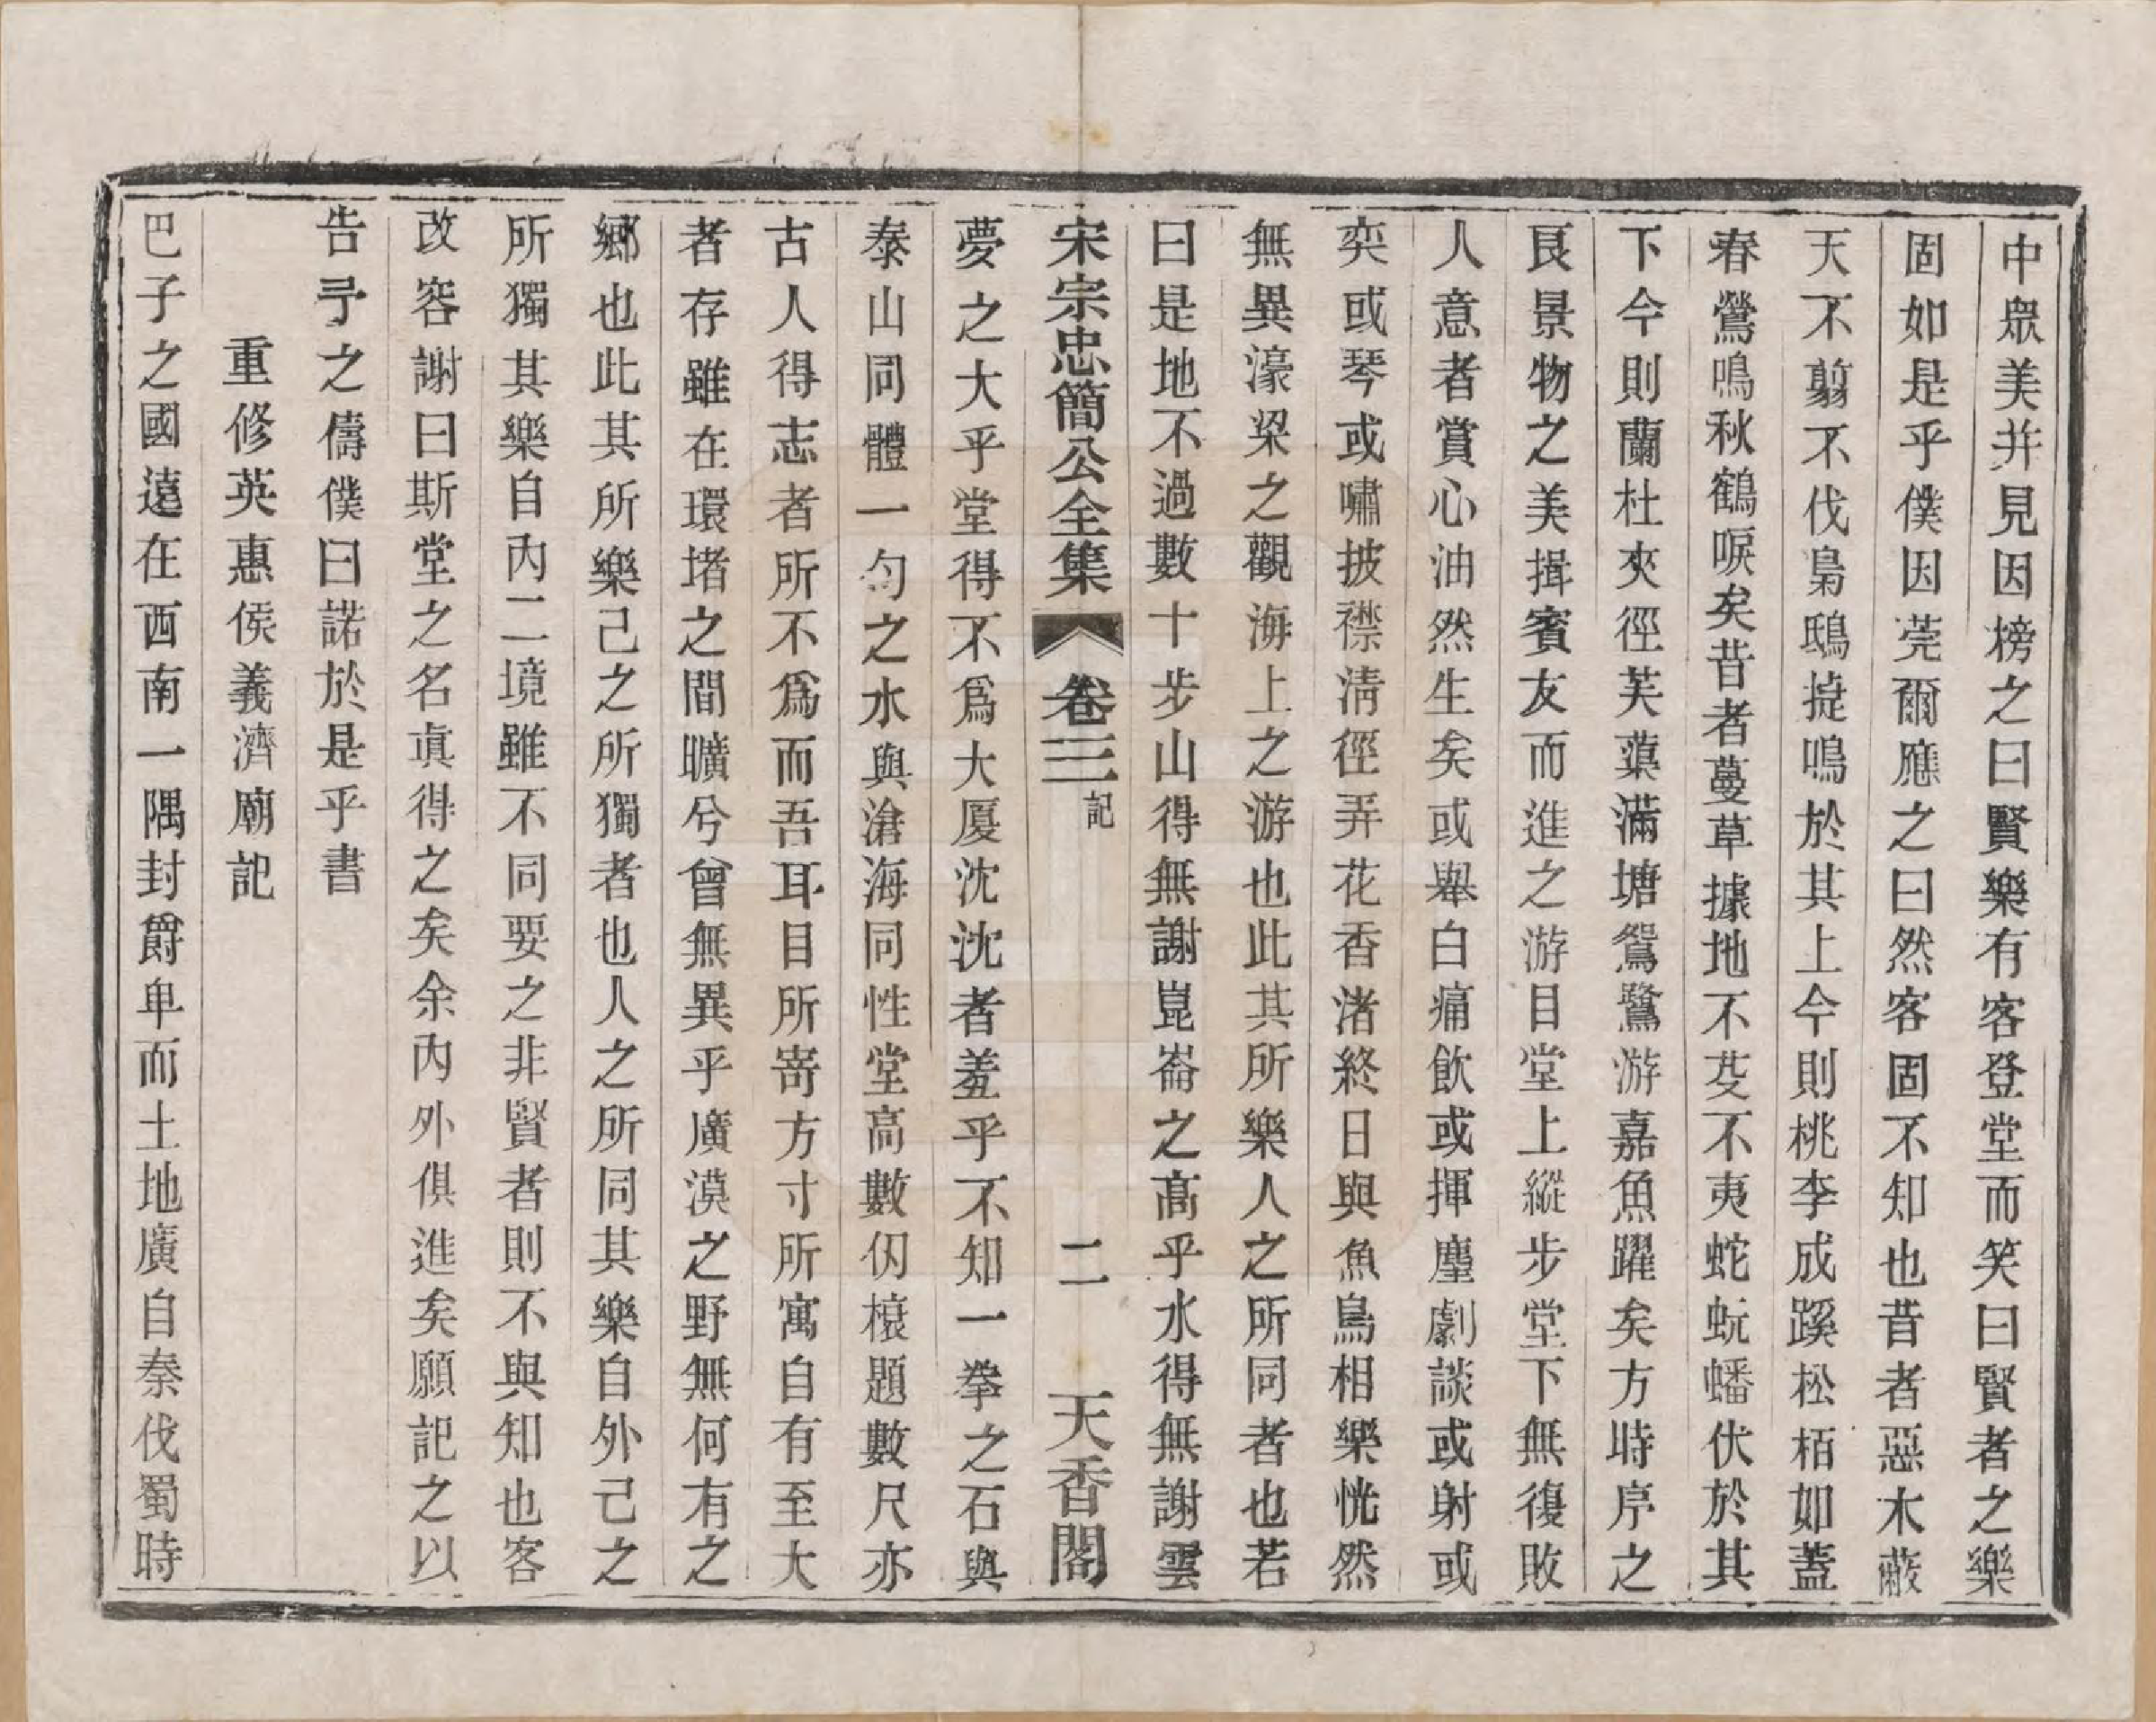 中眾美并見因榜之曰賢樂有客登堂而笑曰賢者之樂
固如是乎僕因莞爾應之曰然客固不知也昔者惡木蔽
天不翦不伐梟鴟㨗鳴於其上今則桃李成蹊松栢如蓋
春鶯鳴秋鶴唳矣昔者蔓草據地不芟不夷蛇蚖蟠伏於其
下今則蘭杜夾徑芙蕖滿塘鴛鷺游嘉魚躍矣方時序之
良景物之美揖賓友而進之游目堂上縱步堂下無復敗
人意者賞心油然生矣或舉白痛飲或揮麈劇談或射或
奕或琴或嘯披襟淸徑弄花香渚終日與魚鳥相樂恍然
無異濠梁之觀海上之游也此其所樂人之所同者也若
曰是地不過數十步山得無謝崑崙之高乎水得無謝雲
宋宗忠簡公全集 卷三 記 二 天香閣
夢之大乎堂得不爲大厦沈沈者羞乎不知一拳之石與
泰山同體一勺之水與滄海同性堂高數仞榱題數尺亦
古人得志者所不爲而吾耳目所寄方寸所寓自有至大
者存雖在環堵之間曠兮曾無異乎廣漠之野無何有之
鄕也此其所樂己之所獨者也人之所同其樂自外己之
所獨其樂自內二境雖不同要之非賢者則不與知也客
改容謝曰斯堂之名眞得之矣余內外俱進矣願記之以
告予之儔僕曰諾於是乎書
重修英惠侯義濟廟記
巴子之國遠在西南一隅封爵卑而土地廣自秦伐蜀時